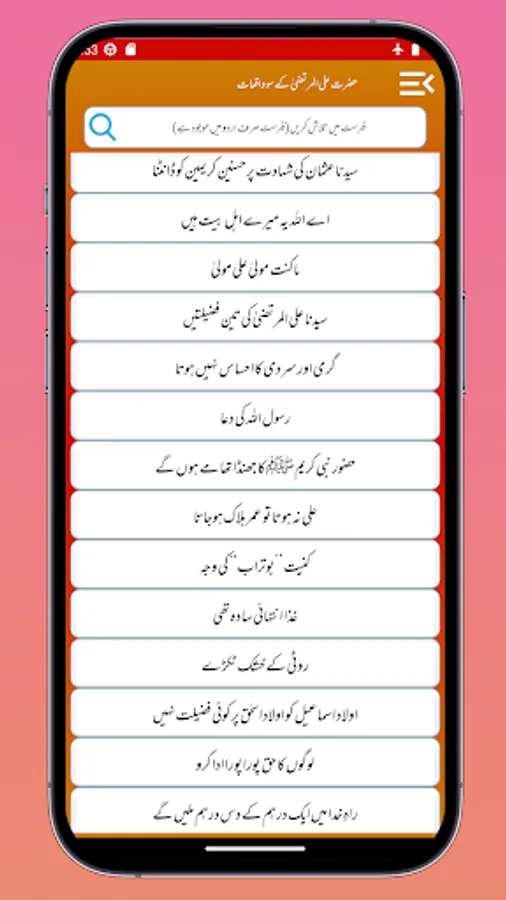 :53
حضرت علی المرتضیٰ کے سو واقعات
فہرست میں تلاش کریں (فہرست صرف اردو میں موجود ہے)
سیدنا عثمان کی شہادت پر حسنین کریمین کو ڈانٹنا
اے اللہ یہ میرے اہل بیت ہیں
ماکنت مولیٰ علی مولیٰ
سیدنا علی المرتضیٰ کی تین فضیلتیں
گرمی اور سردی کا احساس نہیں ہوتا
رسول اللہ کی دعا
حضور نبی کریم ﷺ کا جھنڈا تھامے ہوں گے
علی نہ ہوتا تو عمر ہلاک ہوجاتا
کنیت "بوتراب" کی وجہ
غذا انتہائی سادہ تھی
روٹی کے خشک ٹکڑے
اولاد اسماعیل کو اولاد اسحٰق پر کوئی فضیلت نہیں
لوگوں کا حق پورا پورا ادا کرو
راہِ خدا میں ایک درہم کے دس درہم ملیں گے